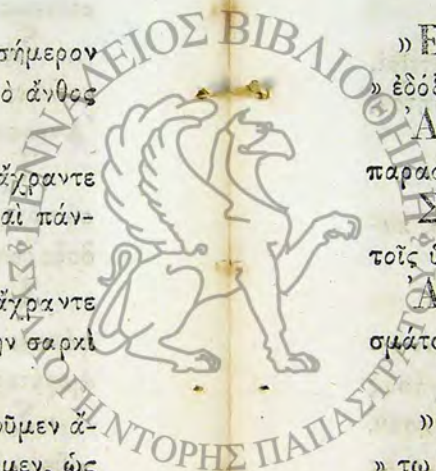 σήμερον
ὸ ἄνθος
ἄχραντε
αὶ πάν-
ἄχραντε
ν σαρκὶ
οῦμεν ἄ-
μεν, ὡς
» ἐδόξ
παρασ
τοῖς ὑ
σμάτο
»
» τω
ΓΕΝΝΑΔΕΙΟΣ ΒΙΒΛΙΟΘΗΚΗ
ΣΥΛΛΟΓΗ ΝΤΟΡΗΣ ΠΑΠΑΣΤΡΑΤΟΥ